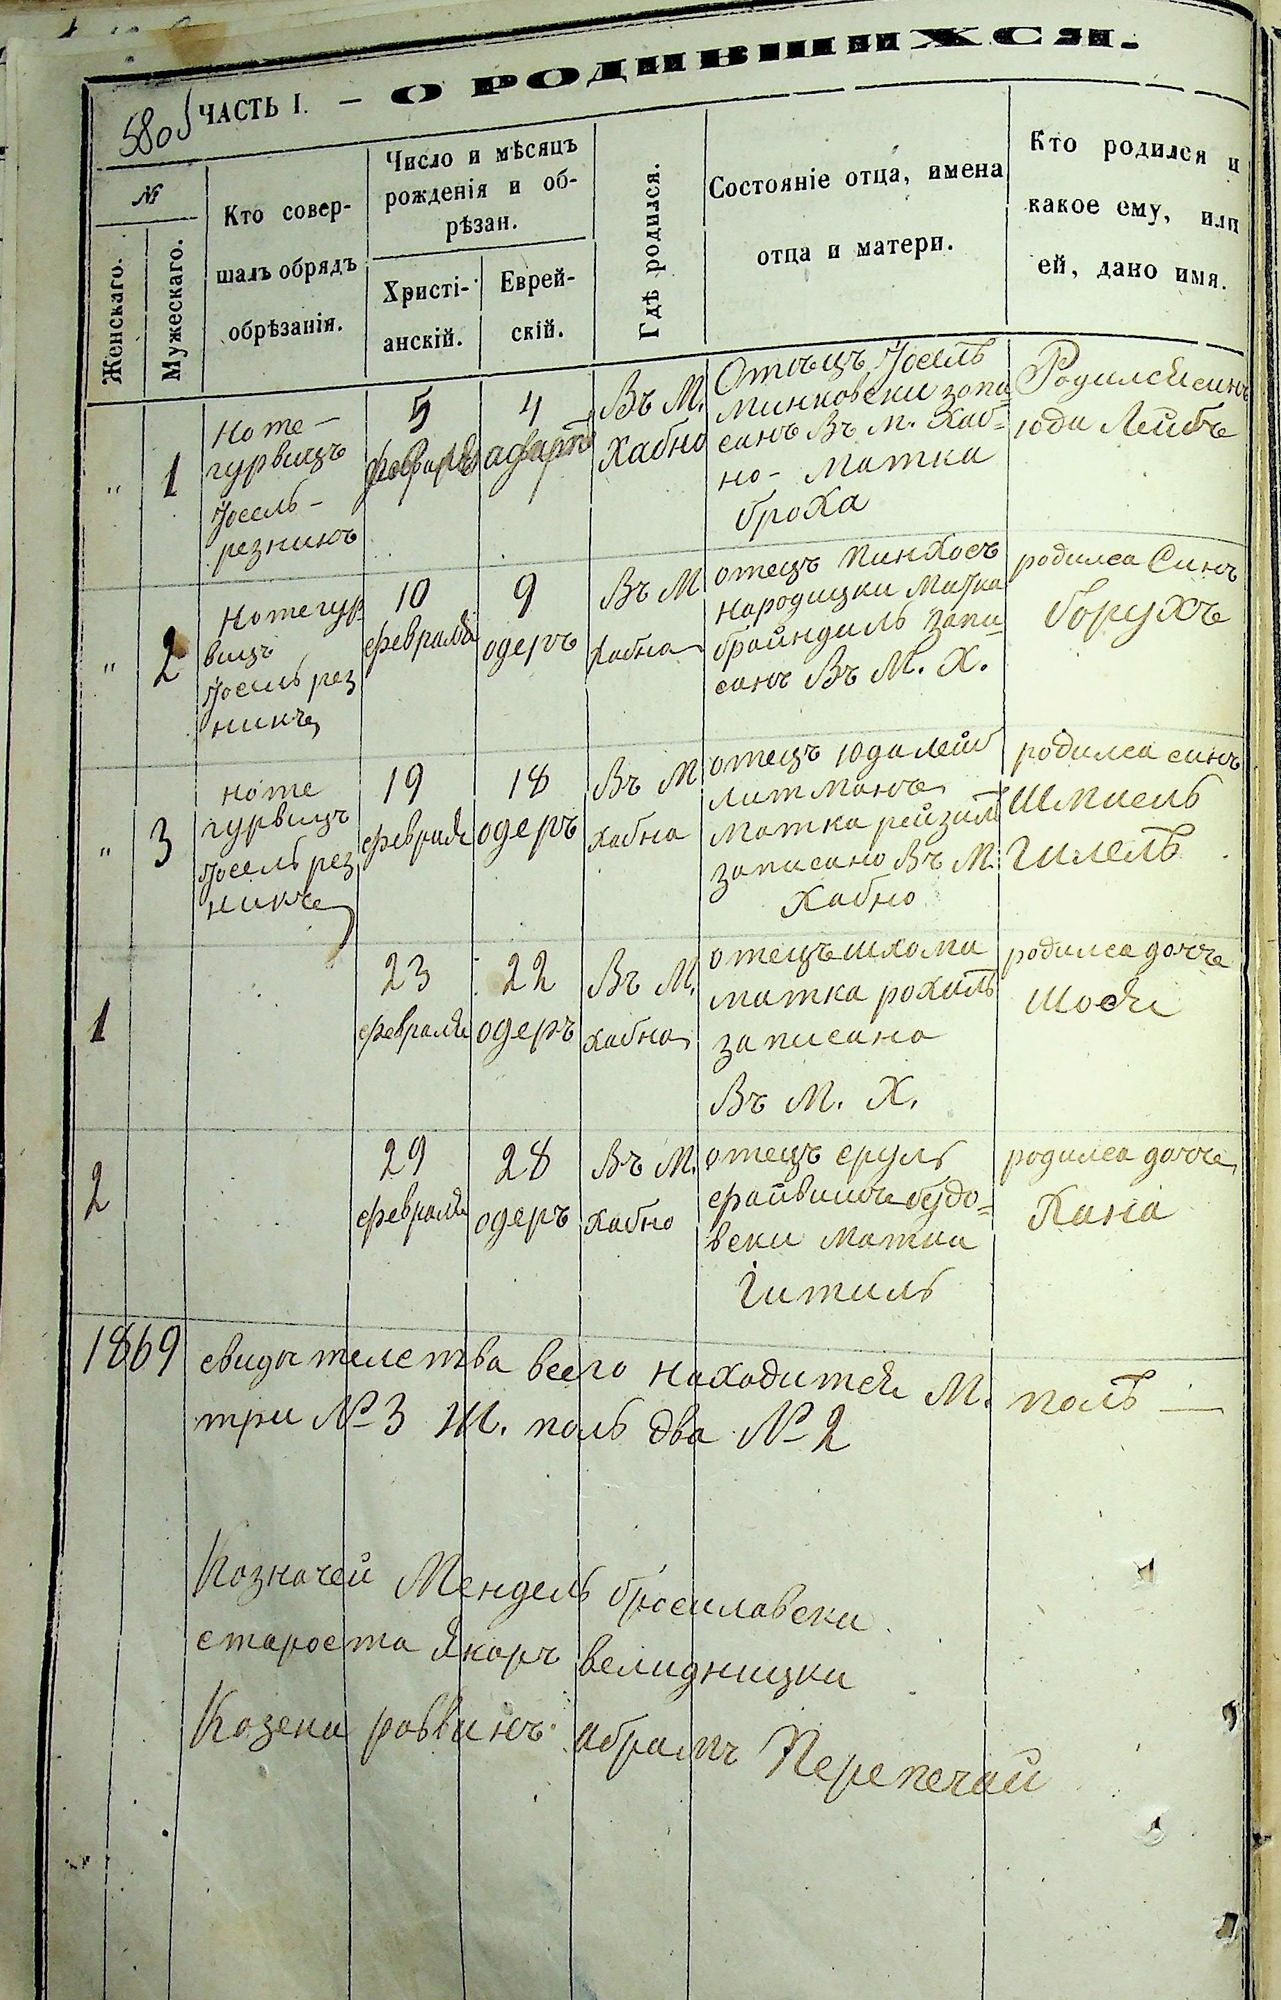 580
ЧАСТЬ I. — О РОДИВШИХСЯ.
№
Женскаго.
Мужескаго.
Кто совер-
шалъ обрядъ
обрѣзанія.
Число и мѣсяцъ
рожденія и об-
рѣзан.
Христі-
анскій.
Еврей-
скій.
Гдѣ родился.
Состояніе отца, имена
отца и матери.
Кто родился и
какое ему, или
ей, дано имя.
„
1
Ноте –
гурвицъ
Іосель –
резникъ
5
февраля
4
Въ М.
Хабно
Отецъ Іосель
Минковски запи
санъ Въ М. Хаб-
но – матка
броха
Родился синъ
юда Лейбъ
„
2
Ноте гур
вицъ
Іосель рез
никъ
10
февраля
9
одеръ
Въ М
хабна
отецъ Пинхосъ
Народицки Матка
брайндиль запи
санъ Въ М. Х.
родилса Синъ
борухъ
„
3
ноте
гурвицъ
Іосель рез
никъ
19
февраля
18
одеръ
Въ М
хабна
отецъ юда лейб
литманъ
матка рейзиль
записано Въ М.
Хабно
родилса синъ
Шмиель
Гилель
1
23
февраля
22
одеръ
Въ М.
хабна
отецъ шлома
матка рохиль
записана
Въ М. Х.
родилса дочъ
Шося
2
29
февраля
28
одеръ
Въ М.
хабно
отецъ сруль
файвишъ будо-
вски матка
Гитиль
родилса дочъ
Хана
1869 свидетелства всего находится М. поль —
три № 3 Ж. поль два № 2
Козначей Мендель брсилавски
староста Якоръ велидницки
Козени раввинъ абрамъ Перепечай